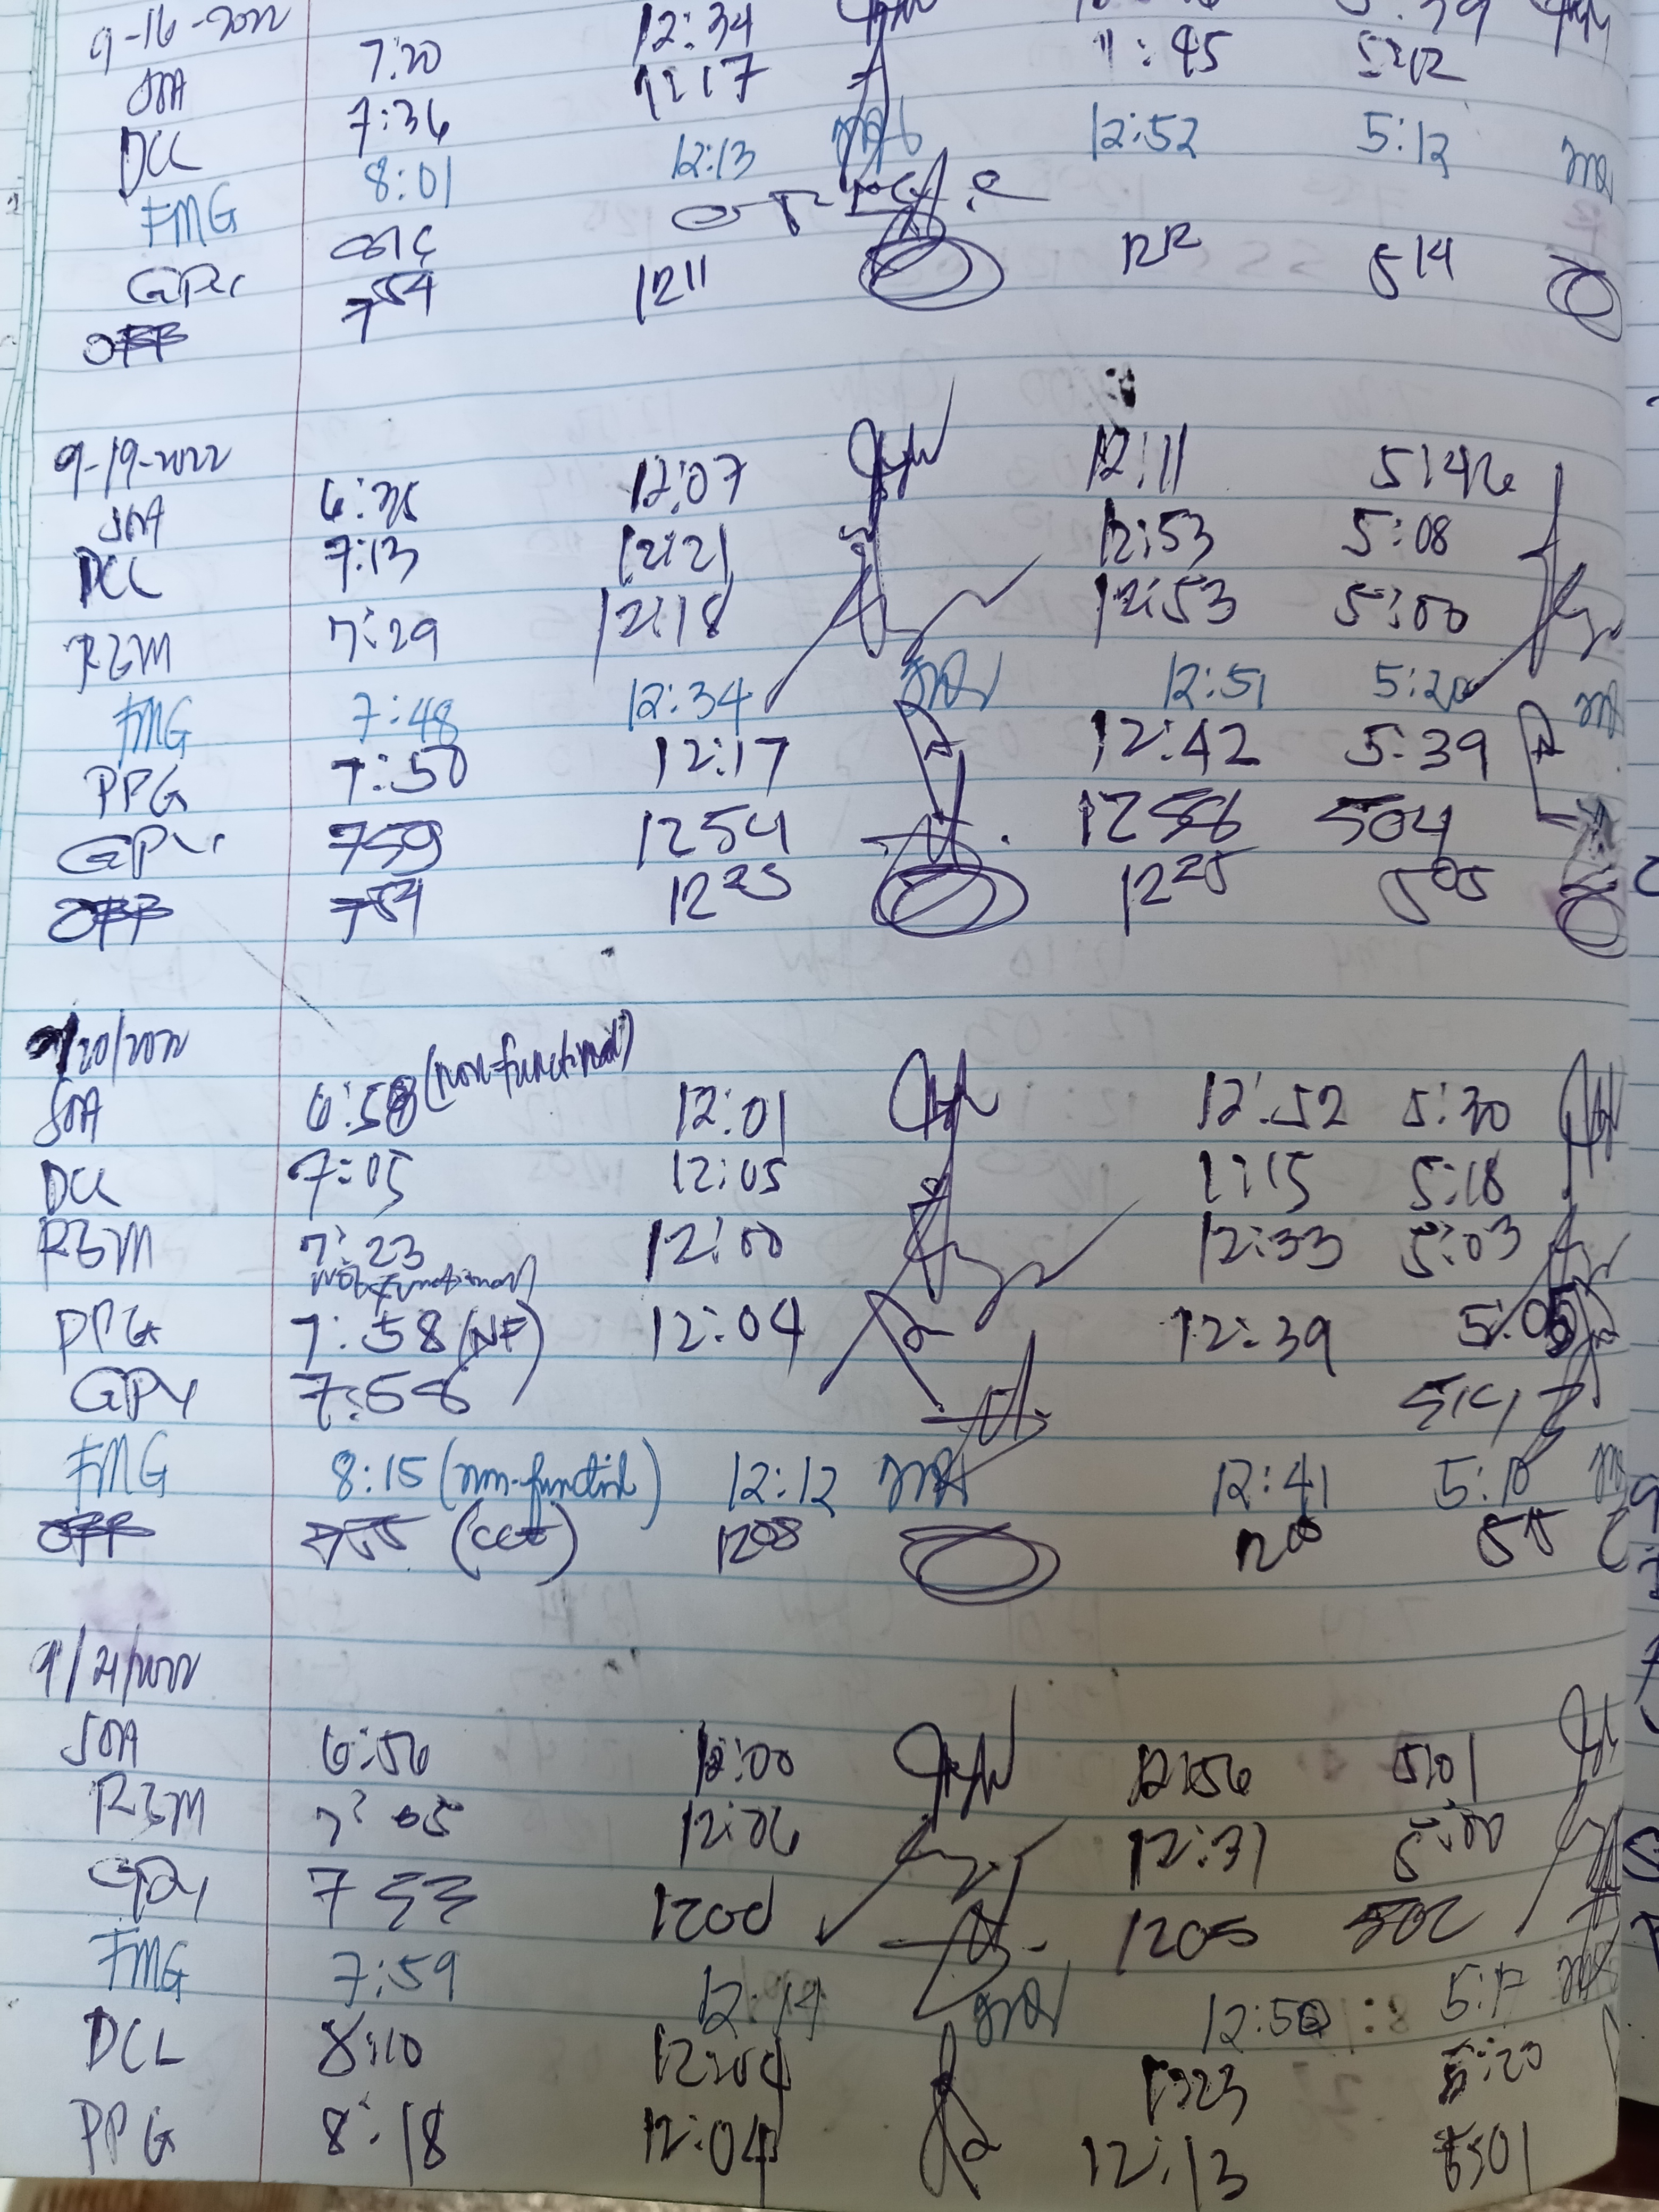 9-16-2022 12:34
JOA 7:20 12:17 1:45 5:12
DCL 7:36
FMG 8:01 12:13 12:52 5:12
GPY
OFF 7 54 12 11 12 12 5 14
9-19-2022
JOA 6:35 12:07 12:11 5:46
DCL 7:13 12:21 12:53 5:08
RZM 7:29 12:18 12:53 5:00
FMG 7:48 12:34 12:51 5:20
PPG 7:50 12:17 12:42 5:39
GPY 759 1254 1256 504
OFF 7 54 12 25 12 25 5 05
9/20/2022
JOA 6:58 (non-functional) 12:01 12:52 5:30
DCL 7:05 12:05 1:15 5:18
RZM 7:23 12:00 12:33 5:03
not functional
PPG 7:58 (NF) 12:04 12:39 5:05
GPY 7:58
FMG 8:15 (non-functional) 12:12 12:41
OFF 7 55 12 08
9/21/2022
JOA 6:56 12:00 12:56 5:01
RZM 7:05 12:06 12:31 5:00
GPY 7 53 1200 1205 502
FMG 7:59 12:14 12:50 5:17
DCL 8:10 12:04 1:23 5:20
PPG 8:18 12:04 12:13 5:01